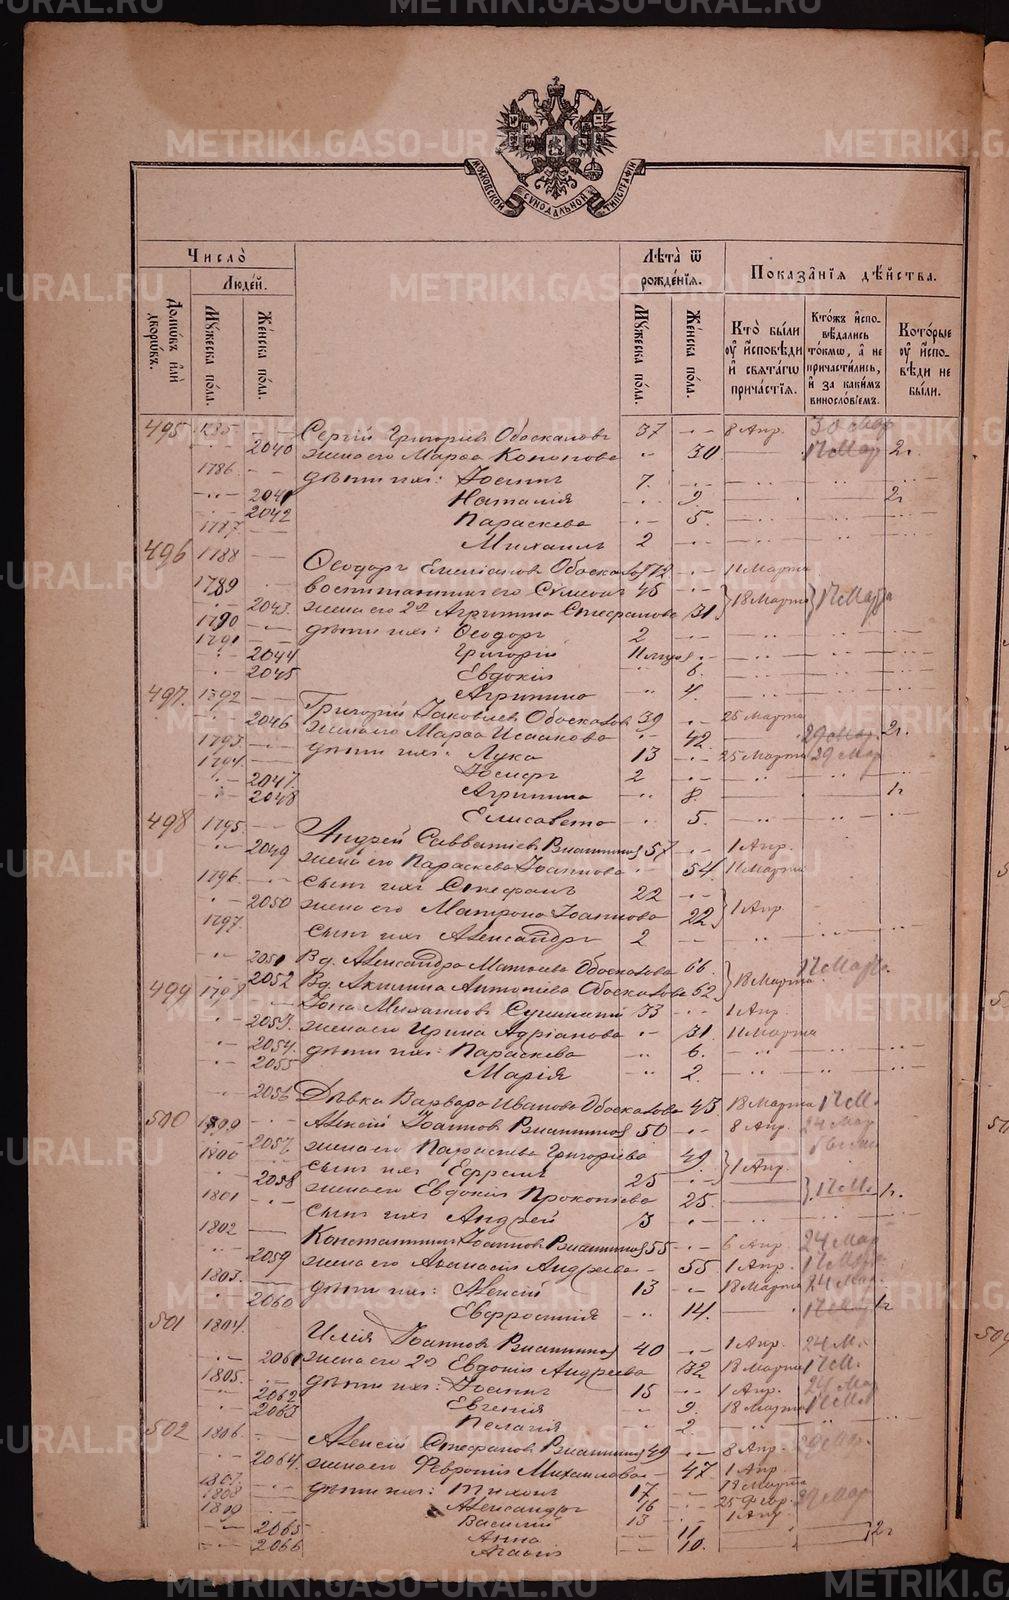 МОСКОВСКОЙ СУНОДАЛЬНОЙ ТИПОГРАФІИ
Число̀
Люде́й.
Лѣта̀ ѿ рожде́нїѧ.
Показа̑нїѧ дѣ́йства.
Домѡ́въ и҆лѝ дворѡ́въ.
Мꙋ́жеска по́ла.
Же́нска по́ла.
Мꙋ́жеска по́ла.
Же́нска по́ла.
Кто̀ бы́ли оу҆ и҆сповѣ́ди и҆ свѧта́гѡ прича́стїѧ.
Кто́жъ и҆сповѣ́дались то́кмѡ, а҆ не причасти́лись, и҆ за каки́мъ винослов́їемъ.
Кото́рые оу҆ и҆сповѣ́ди не бы́ли.
495 1785 Сергій Григорьев Обоскалов 37 8 Апр. 30 Мар
2040 жена его Марфа Кононова 30 17 Мар 2г.
1786 дѣти ихъ: Іоаннъ 7.
2041 Наталия 9. 2г
2042 Параскева 5.
1787 Михаилъ 2
496 1788 Ѳеодоръ Емелианов Обоскалов 72 11 Марта
1789 воспитанникъ его Сѵмеонъ 45
2043 жена его 2я Агрипина Стефанова 31 18 Марта 17 Мар
1790 дѣти ихъ: Ѳеодоръ 2
1791 Григорій 11 мѣся
2044 Евдокія 6.
2045 Агрипина 4.
497. 1792 Григорій Іаковлев Обоскалов 39 25 Марта
2046 жена его Марфа Исаакова 42. 29 Мар. 2г.
1793 дѣти ихъ: Лука 13 25 Марта 29 Мар
1794 Іосифъ 2
2047. Агрипина 8. 1г
2048 Елисавета 5.
498 1795 Андрей Савватіев Вяткинъ 57 1 Апр.
2049 жена его Параскева Іоаннова 54 11 Марта
1796 сынъ ихъ Стефанъ 22
2050 жена его Матрона Іоаннова 22 1 Апр
1797. сынъ ихъ Александръ 2
2051 Вд. Александра Матвѣева Обоскалова 66 17 Мар
2052 Вд. Акилина Антонієва Обоскалова 62 18 Марта
499 1798 Іона Михаилов 33 1 Апр
2053. жена его Ирина Адріанова 31 11 Марта
2054. дѣти ихъ: Параскева 6.
2055 Марія 2.
2056 Дѣвка Варвара Иванова Обоскалова 43 18 Марта 17 М.
500 1799 Алексій Іоаннов Вяткинъ 50 8 Апр. 24 Мар
2057. жена его Параскева Григорієва 49.
1800 сынъ ихъ Ефремъ 25 1 Апр.
2058 жена его Евдокія Прокопієва 25. 17 М. 1г.
1801 сынъ ихъ Андрей 3
1802 Константинъ Іоаннов Вяткинъ 55 6 Апр. 24 Мар
2059 жена его Аѳанасія Андреева 55 1 Апр. 17 Мар
1803. дѣти ихъ: Алексій 13 18 Марта 24 Мар.
2060 Евфросинія 14. 1г
501 1804. Илія Іоаннов Вяткинъ 40 1 Апр. 24 М.
2061 жена его 2я Евдокія Андреева 32 18 Марта 17 М.
1805. дѣти ихъ: Іоаннъ 15 1 Апр. 24 Мар
2062 Евгенія 9. 18 Марта 17 М
2063 Пелагія 2
502 1806. Алексій Стефанов Вяткинъ 49 8 Апр. 29 Мар.
2064. жена его Февронія Михаилова 47 1 Апр
1807. дѣти ихъ: Тихонъ 17 18 Марта
1808 Александръ 16 25 Февр. 29 Мар
1809 Василій 13 1 Апр
2065 Анна 11 2г
2066 Агафія 10.
METRIKI.GASO-URAL.RU